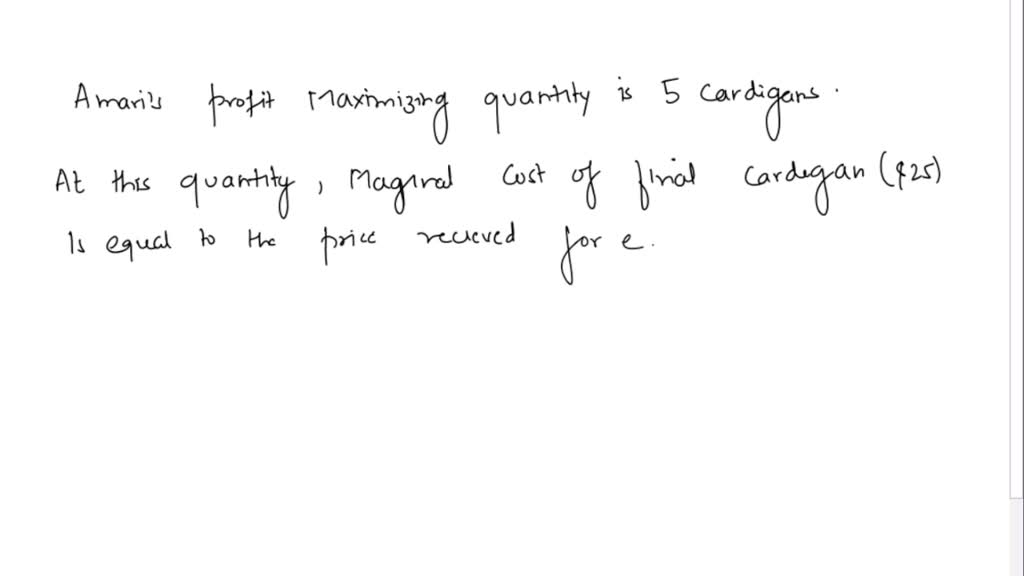 Amari's profit Maximizing quantity is 5 cardigans.
At this quantity, Maginal cost of final cardegan ($25)
Is equal to the price recieved for e.